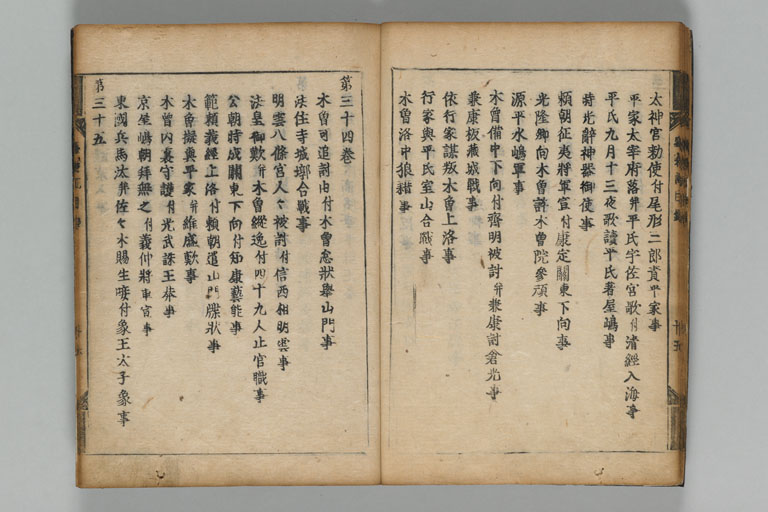 太神宮勅使付尾形二郎責平家事
平家太宰府落并平氏宇佐宮歌付清經入海事
平氏九月十三夜歌讀平氏著屋嶋事
時光辭神器御使事
頼朝征夷將軍宣付康定關東下向事
光隆卿向木曽許木曽院參頑事
源平水嶋軍事
木曽備中下向付齊明被討并兼康討倉光事
兼康板藏城戰事
依行家謀叛木曽上洛事
行家與平氏室山合戰事
木曽洛中狼藉事
第三十四卷
木曽可追討由付木曽怠状擧山門事
法住寺城墎合戰事
明雲八條宮人々被討付信西相明雲事
法皇御歎并木曽縱逸付四十九人止官職事
公朝時成關東下向付知康藝能事
範頼義經上洛付頼朝遣山門牒状事
木曽擬與平家并維盛歎事
木曽内裏守護付光武誅王莽事
京屋嶋朝拜無之付義仲將軍宣事
東國兵馬汰并佐々木賜生唼付象王太子象事
第三十五